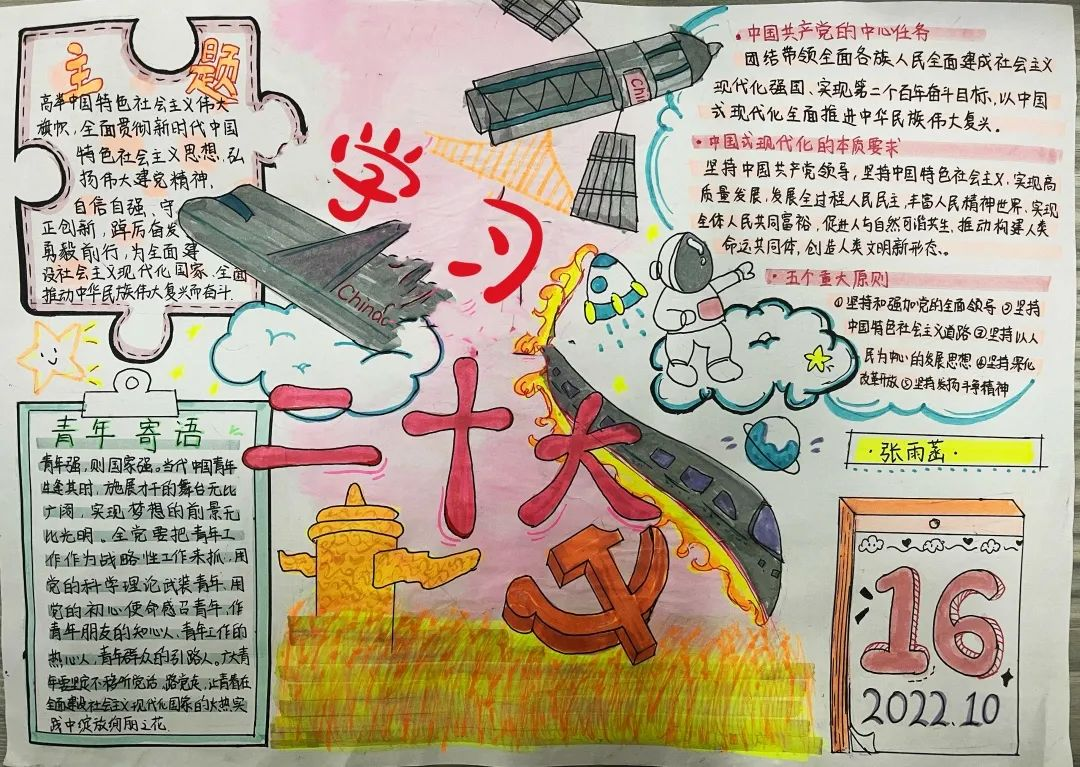 主 题
高举中国特色社会主义伟大
旗帜,全面贯彻新时代中国
特色社会主义思想,弘
扬伟大建党精神,
自信自强、守
正创新,踔厉奋发
勇毅前行,为全面建
设社会主义现代化国家、全面
推动中华民族伟大复兴而奋斗.
学
习
二十大
China
China
·中国共产党的中心任务
团结带领全面各族人民全面建成社会主义
现代化强国、实现第二个百年奋斗目标,以中国
式现代化全面推进中华民族伟大复兴。
·中国式现代化的本质要求
坚持中国共产党领导,坚持中国特色社会主义,实现高
质量发展,发展全过程人民民主,丰富人民精神世界,实现
全体人民共同富裕,促进人与自然和谐共生,推动构建人类
命运共同体,创造人类文明新形态。
·五个重大原则
①坚持和强加党的全面领导②坚持
中国特色社会主义道路③坚持以人
民为中心的发展思想④坚持深化
改革开放⑤坚持发扬斗争精神
·张雨菡·
青年寄语
青年强,则国家强。当代中国青年
生逢其时,施展才干的舞台无比
广阔,实现梦想的前景无
比光明。全党要把青年工
作作为战略性工作来抓,用
党的科学理论武装青年,用
党的初心使命感召青年,作
青年朋友的知心人,青年工作的
热心人,青年群众的引路人。广大青
年要坚定不移听党话、跟党走,让青春在
全面建设社会主义现代化国家的火热实
践中绽放绚丽之花.
16
2022.10